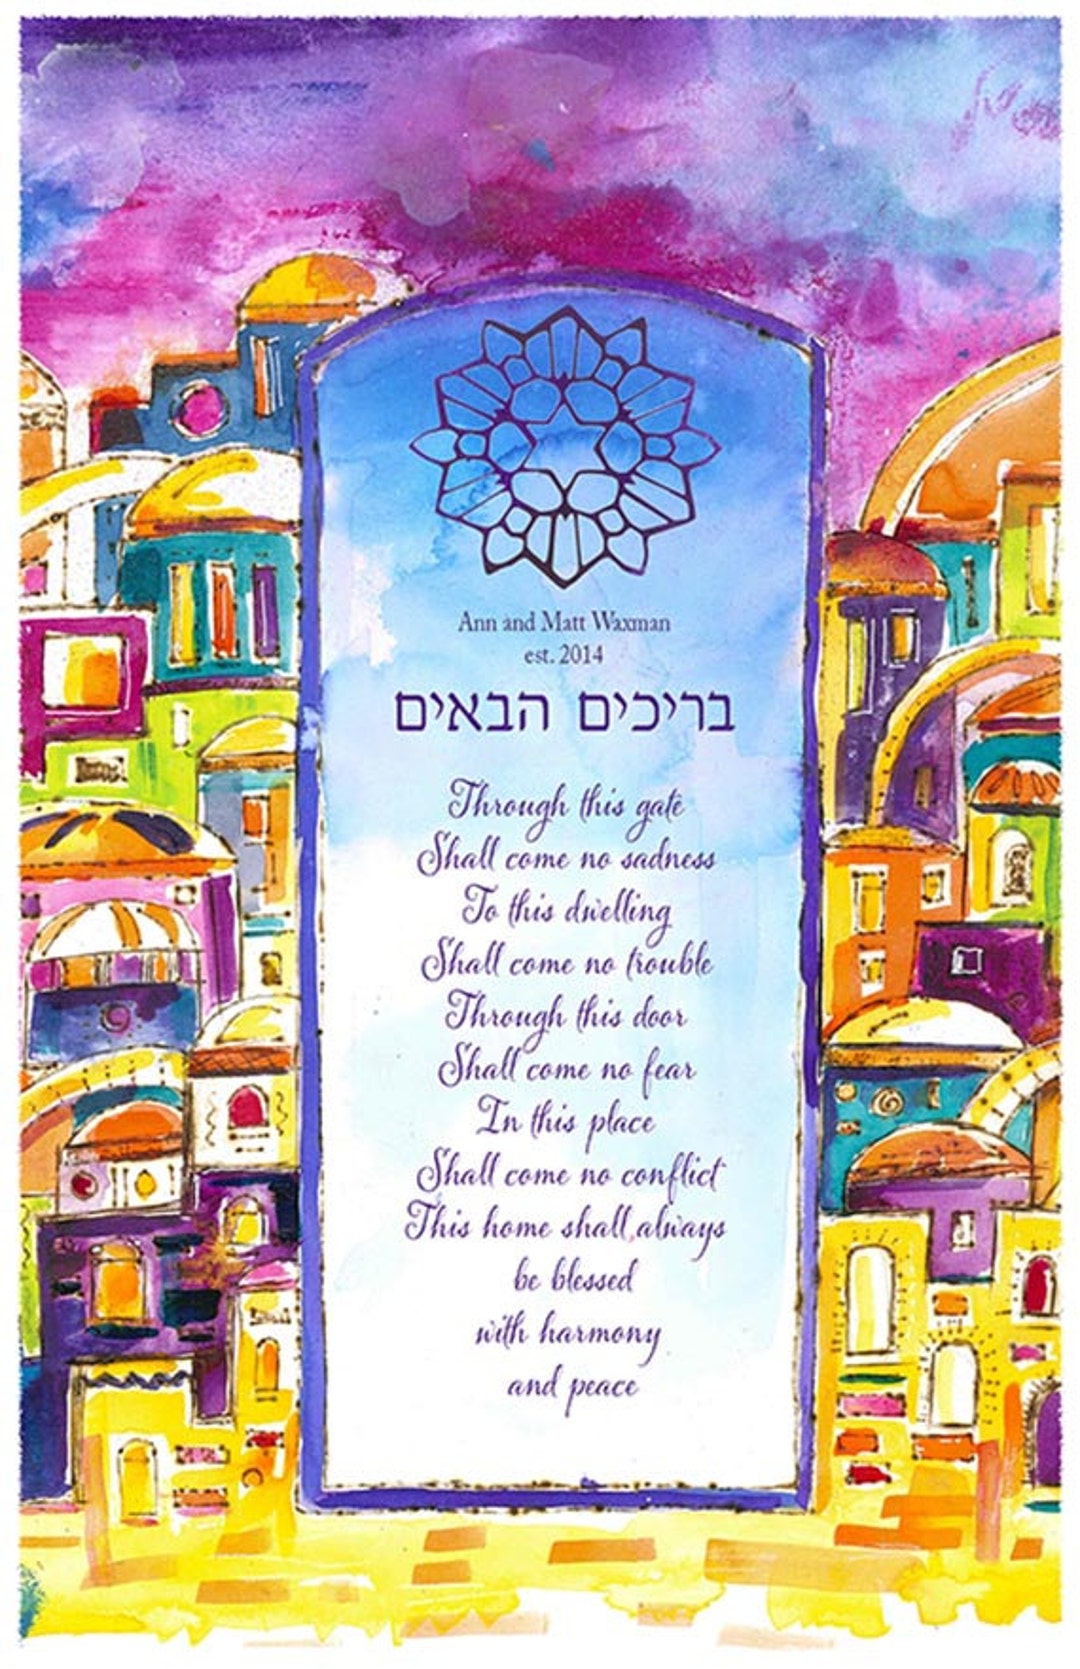 Ann and Matt Waxman
est. 2014
בריכים הבאים
Through this gate
Shall come no sadness
To this dwelling
Shall come no trouble
Through this door
Shall come no fear
In this place
Shall come no conflict
This home shall, always
be blessed
with harmony
and peace